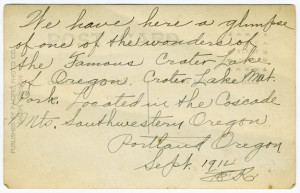 We have here a glimpse
of one of the wonders of
the Famous Crater Lake
of Oregon. Crater Lake Nat.
Park. Located in the Cascade
Mts. Southwestern Oregon
Portland Oregon
Sept. 1912
POST CARD